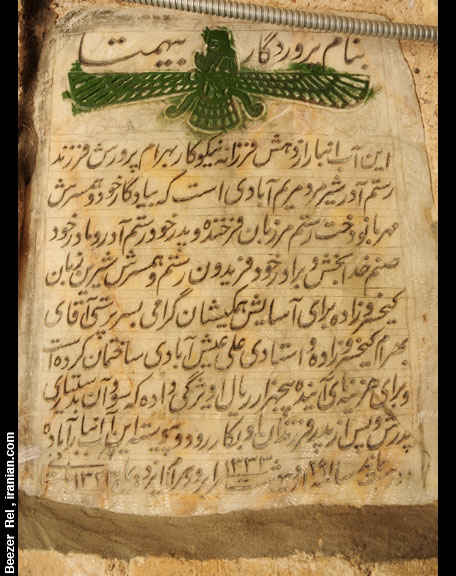 بنام پروردگار بیهمتا
این آب انبار از دهش فرزانه نیکوکار بهرام پرورش فرزند
رستم آدر شیرد مریم آبادی است که بیادگار خود و همسرش
مهربانو دخت رستم مرزبان فرخنده و پدر خود رستم آدر و مادر خود
صنم خدابخش و برادر خود فریدون رستم و همسرش شیرین نهبان
کیخسرفزاده برای آسایش همکیشان گرامی بسرپرستی آقای
بهرام کیخسرفزاده و استادی علی عیش آبادی ساختمان کرده است
و برای هزینه‌ای آینده پنجهزار ریال ویژگی داده که سود آن بدستیاری
پدرش و پس از پدر فرزندان او بکار رود و پیوسته این آب انبار آباده
۲۹ ۱۳۳۳ ۱۳۲۱
Beezer Rel, iranian.com